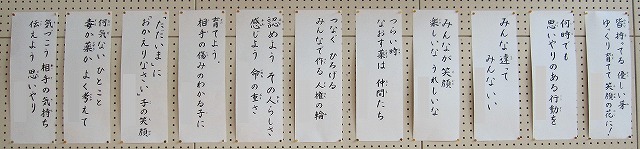 皆持ってる 優しい芽
ゆっくり育てて 笑顔の花に!
何時でも
思いやりのある行動を
みんな違って
みんないい
みんなが笑顔
楽しいな うれしいな
つらい時
なおす薬は 仲間たち
つなぐ ひろげる
みんなで作る 人権の輪
認めよう その人らしさ
感じよう 命の重さ
育てよう、
相手の痛みのわかる子に
「ただいま」に
「おかえりなさい」 子の笑顔
何気ない ひとこと
毒か薬か よく考えて
気づこう 相手の気持ち
伝えよう 思いやり